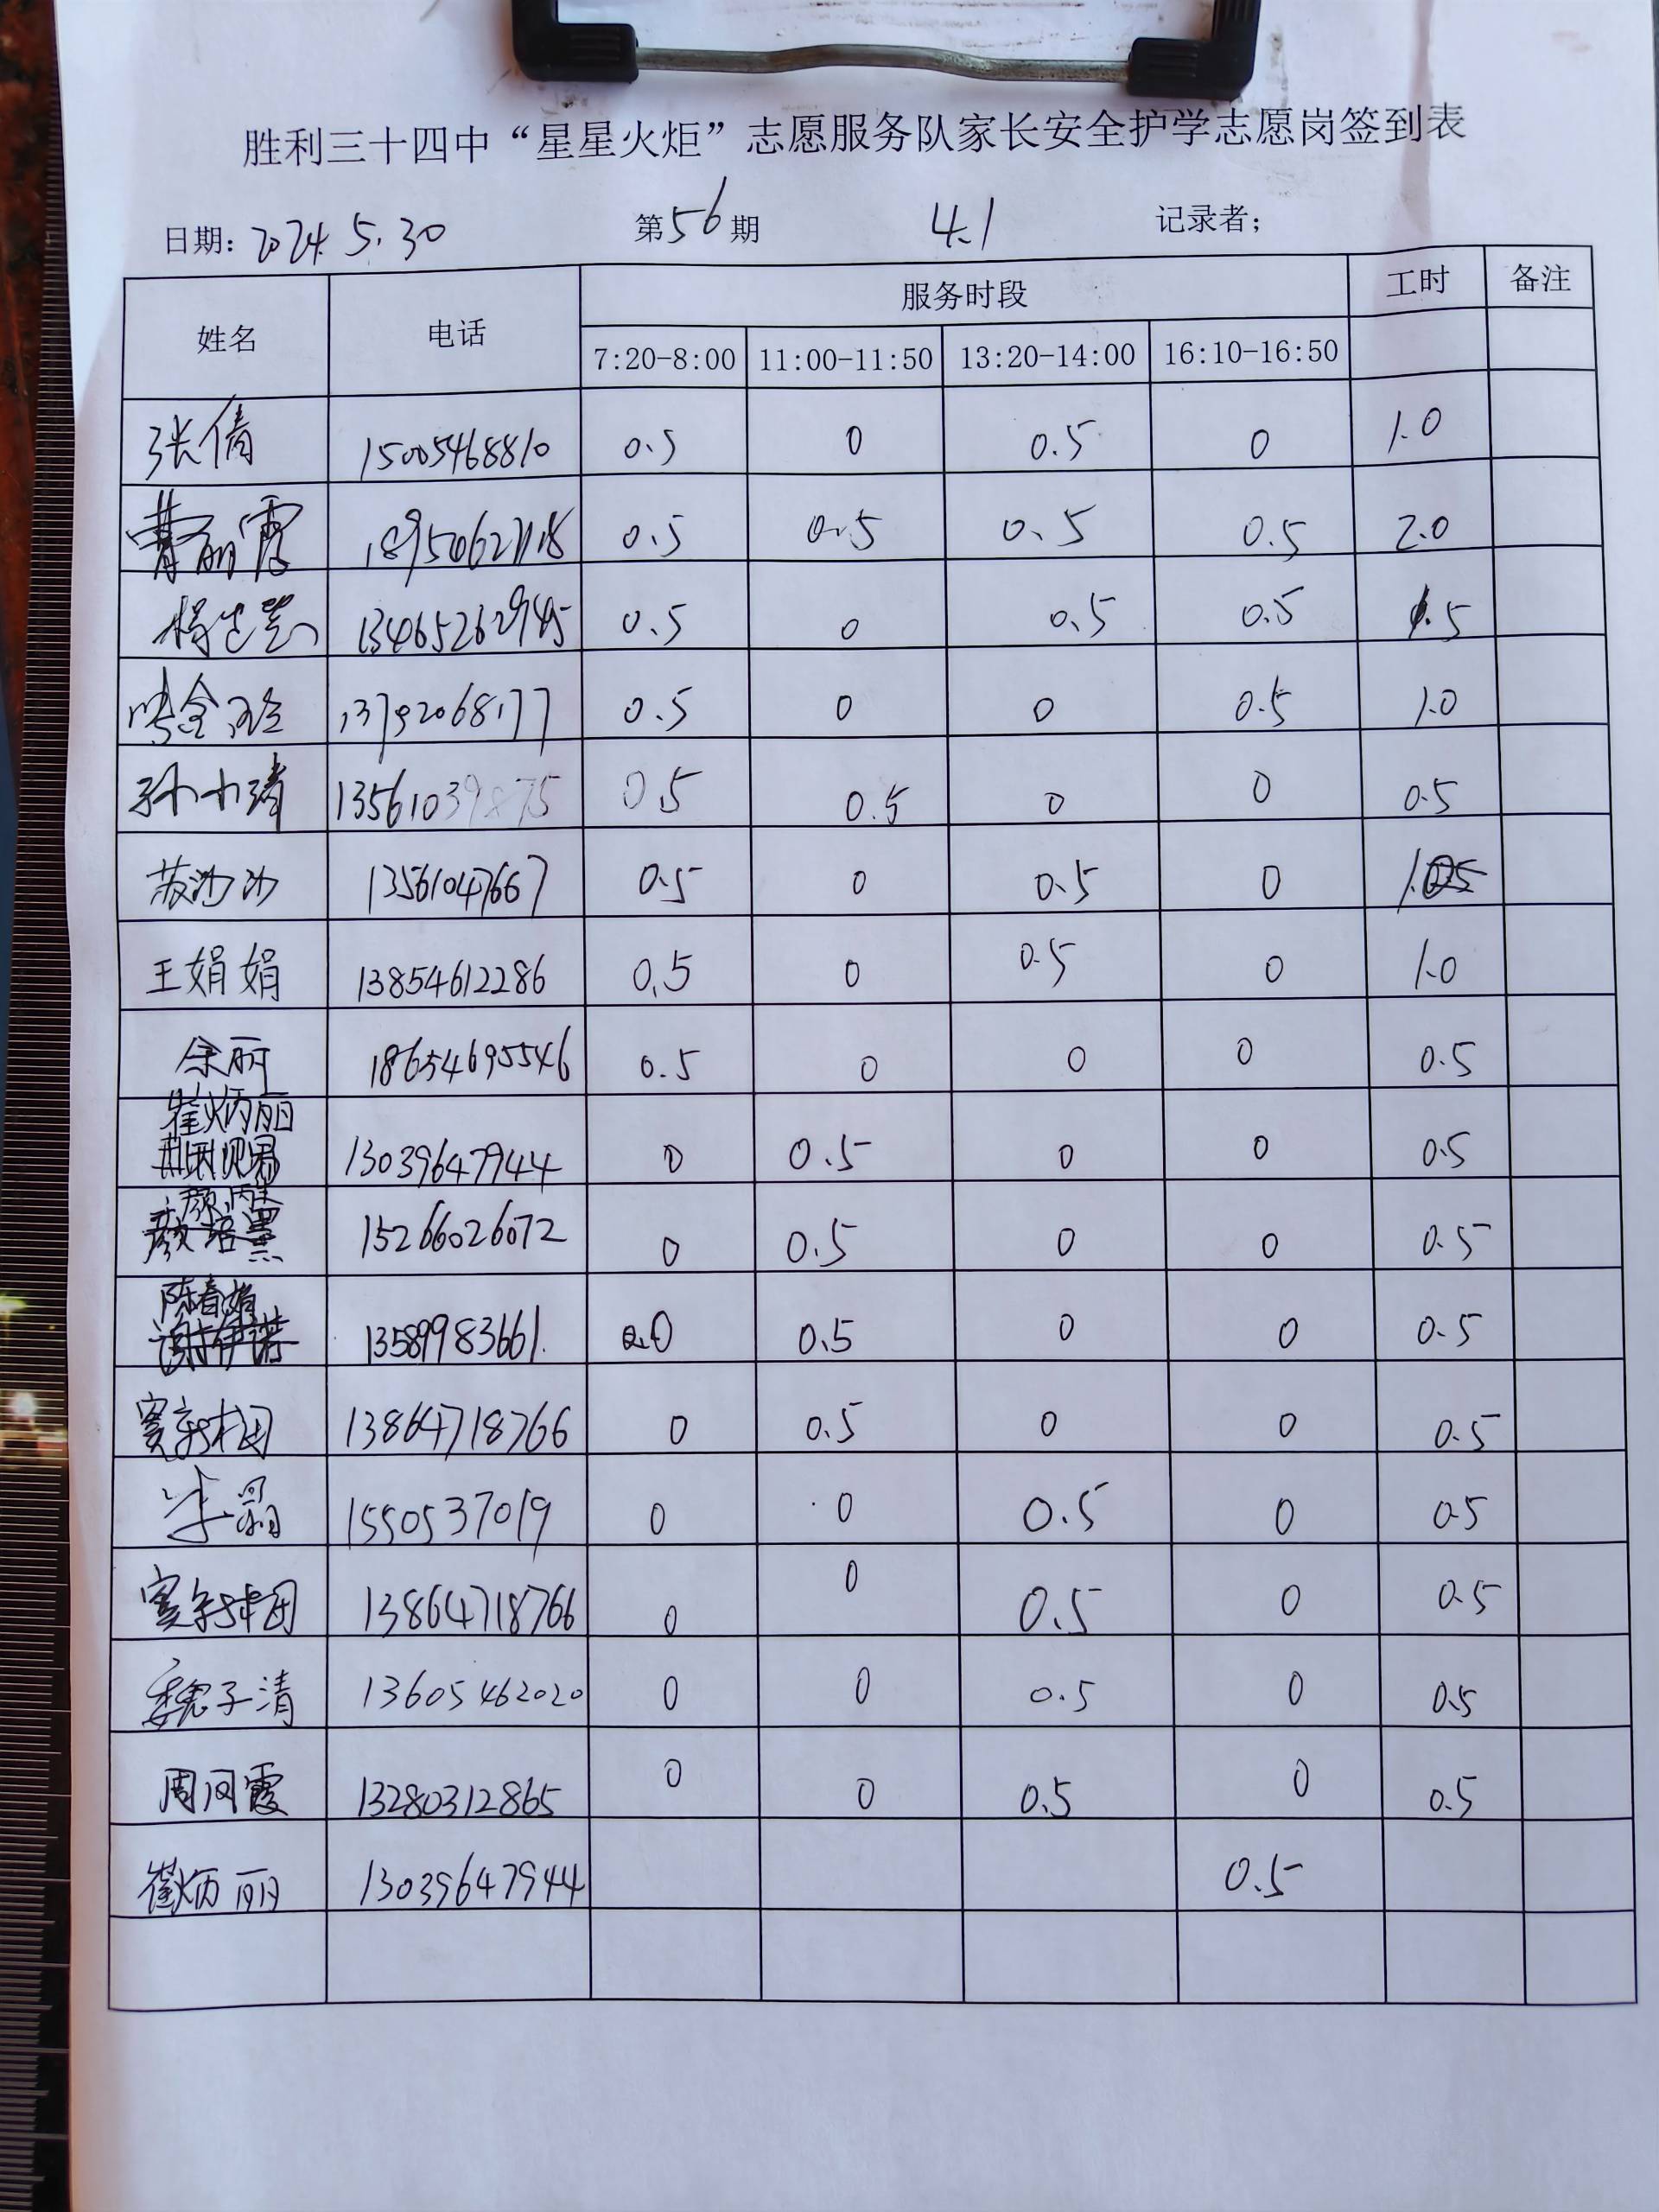 胜利三十四中“星星火炬”志愿服务队家长安全护学志愿岗签到表
日期: 2024.5.30 第56期 4.1 记录者;
姓名 电话 服务时段 工时 备注
7:20-8:00 11:00-11:50 13:20-14:00 16:10-16:50
张倩 15005468810 0.5 0 0.5 0 1.0
曹丽霞 0.5 0.5 0.5 0.5 2.0
13465262945 0.5 0 0.5 0.5 1.5
13792068177 0.5 0 0 0.5 1.0
孙小清 13561039875 0.5 0.5 0 0 0.5
苏沙沙 13561047667 0.5 0 0.5 0
王娟娟 13854612286 0.5 0 0.5 0 1.0
余丽 18654695546 0.5 0 0 0 0.5
崔炳丽
13039647944 0 0.5 0 0 0.5
15266026072 0 0.5 0 0 0.5
陈春娟
13589983661. 0 0.5 0 0 0.5
13864718766 0 0.5 0 0 0.5
李霜 1550537019 0 0 0.5 0 0.5
13864718766 0 0 0.5 0 0.5
魏子清 13605462020 0 0 0.5 0 0.5
周风霞 13280312865 0 0 0.5 0 0.5
崔炳丽 13039647944 0.5